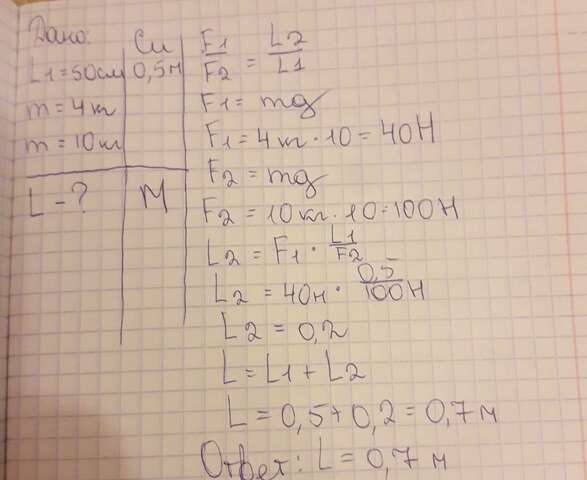 Дано:
Си
L1 = 50см 0,5м
m = 4кг
m = 10кг
L - ?
М
F1/F2 = L2/L1
F1 = mg
F1 = 4кг · 10 = 40Н
F2 = mg
F2 = 10кг · 10 = 100Н
L2 = F1 · L1/F2
L2 = 40н · 0,5/100Н
L2 = 0,2
L = L1 + L2
L = 0,5 + 0,2 = 0,7 м
Ответ: L = 0,7 м